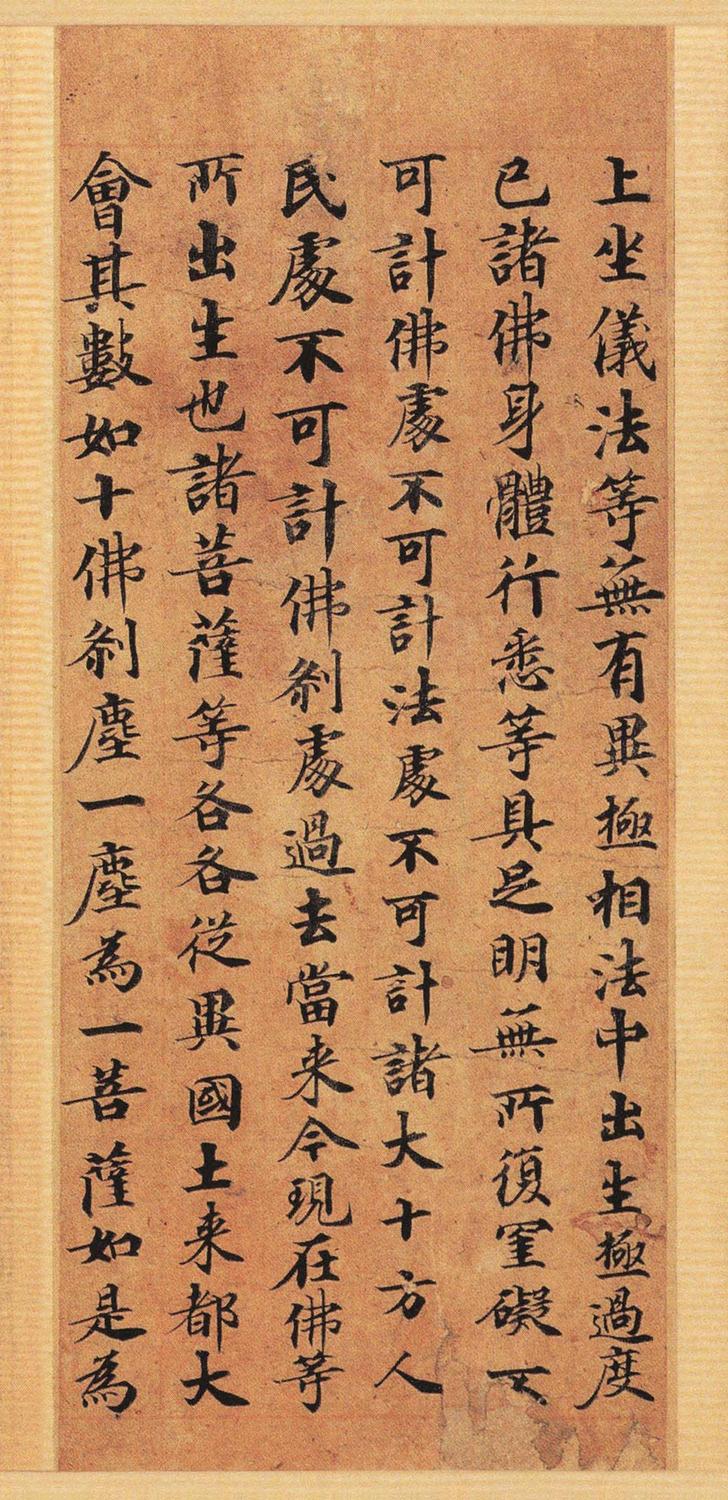 上坐儀法等無有異極相法中出生極過度
已諸佛身體行悉等具足明無所復罣礙不
可計佛處不可計法處不可計諸大十方人
民處不可計佛剎處過去當来今現在佛等
所出生也諸菩薩等各各從異國土来都大
會其數如十佛剎塵一塵為一菩薩如是為